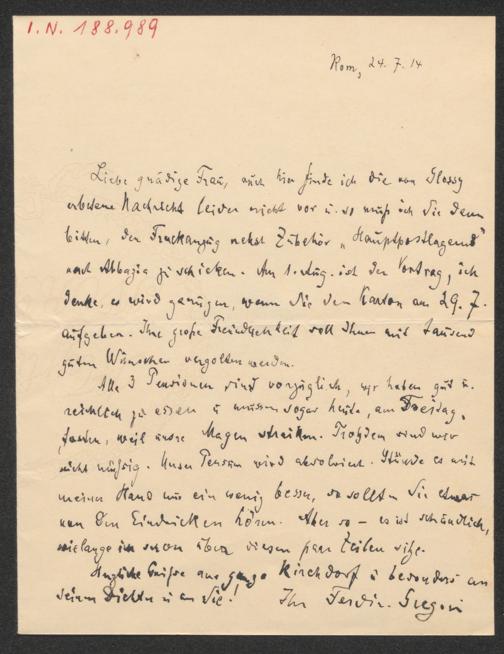 I.N. 188.989
Rom, 24.7.14
Liebe gnädige Frau, auch hier finde ich die von Glossy
erbetene Nachricht leider nicht vor u. so muß ich Sie denn
bitten, den Frackanzug nebst Zubehör „Hauptpostlagernd"
nach Abbazia zu schicken. Am 1. Aug. ist der Vortrag, ich
denke, es wird genügen, wenn Sie den Karton am 29.7.
aufgeben. Ihre große Freundlichkeit soll Ihnen mit tausend
guten Wünschen vergolten werden.
Alle 3 Pensionen sind vorzüglich, wir haben gut u.
reichlich zu essen u müssen sogar heute, am Freitag,
fasten, weil unsre Magen streiken. Trotzdem sind wir
nicht müßig. Unser Pensum wird absolviert. Stünde es mit
meiner Hand nur ein wenig besser, so sollten Sie etwas
von den Eindrücken hören. Aber so – es ist schändlich,
wielange ich schon über diesen paar Zeilen sitze.
Herzliche Grüße ans ganze Kirchdorf u besonders an
seinen Dichter u an Sie! Ihr Ferdin. Gregori